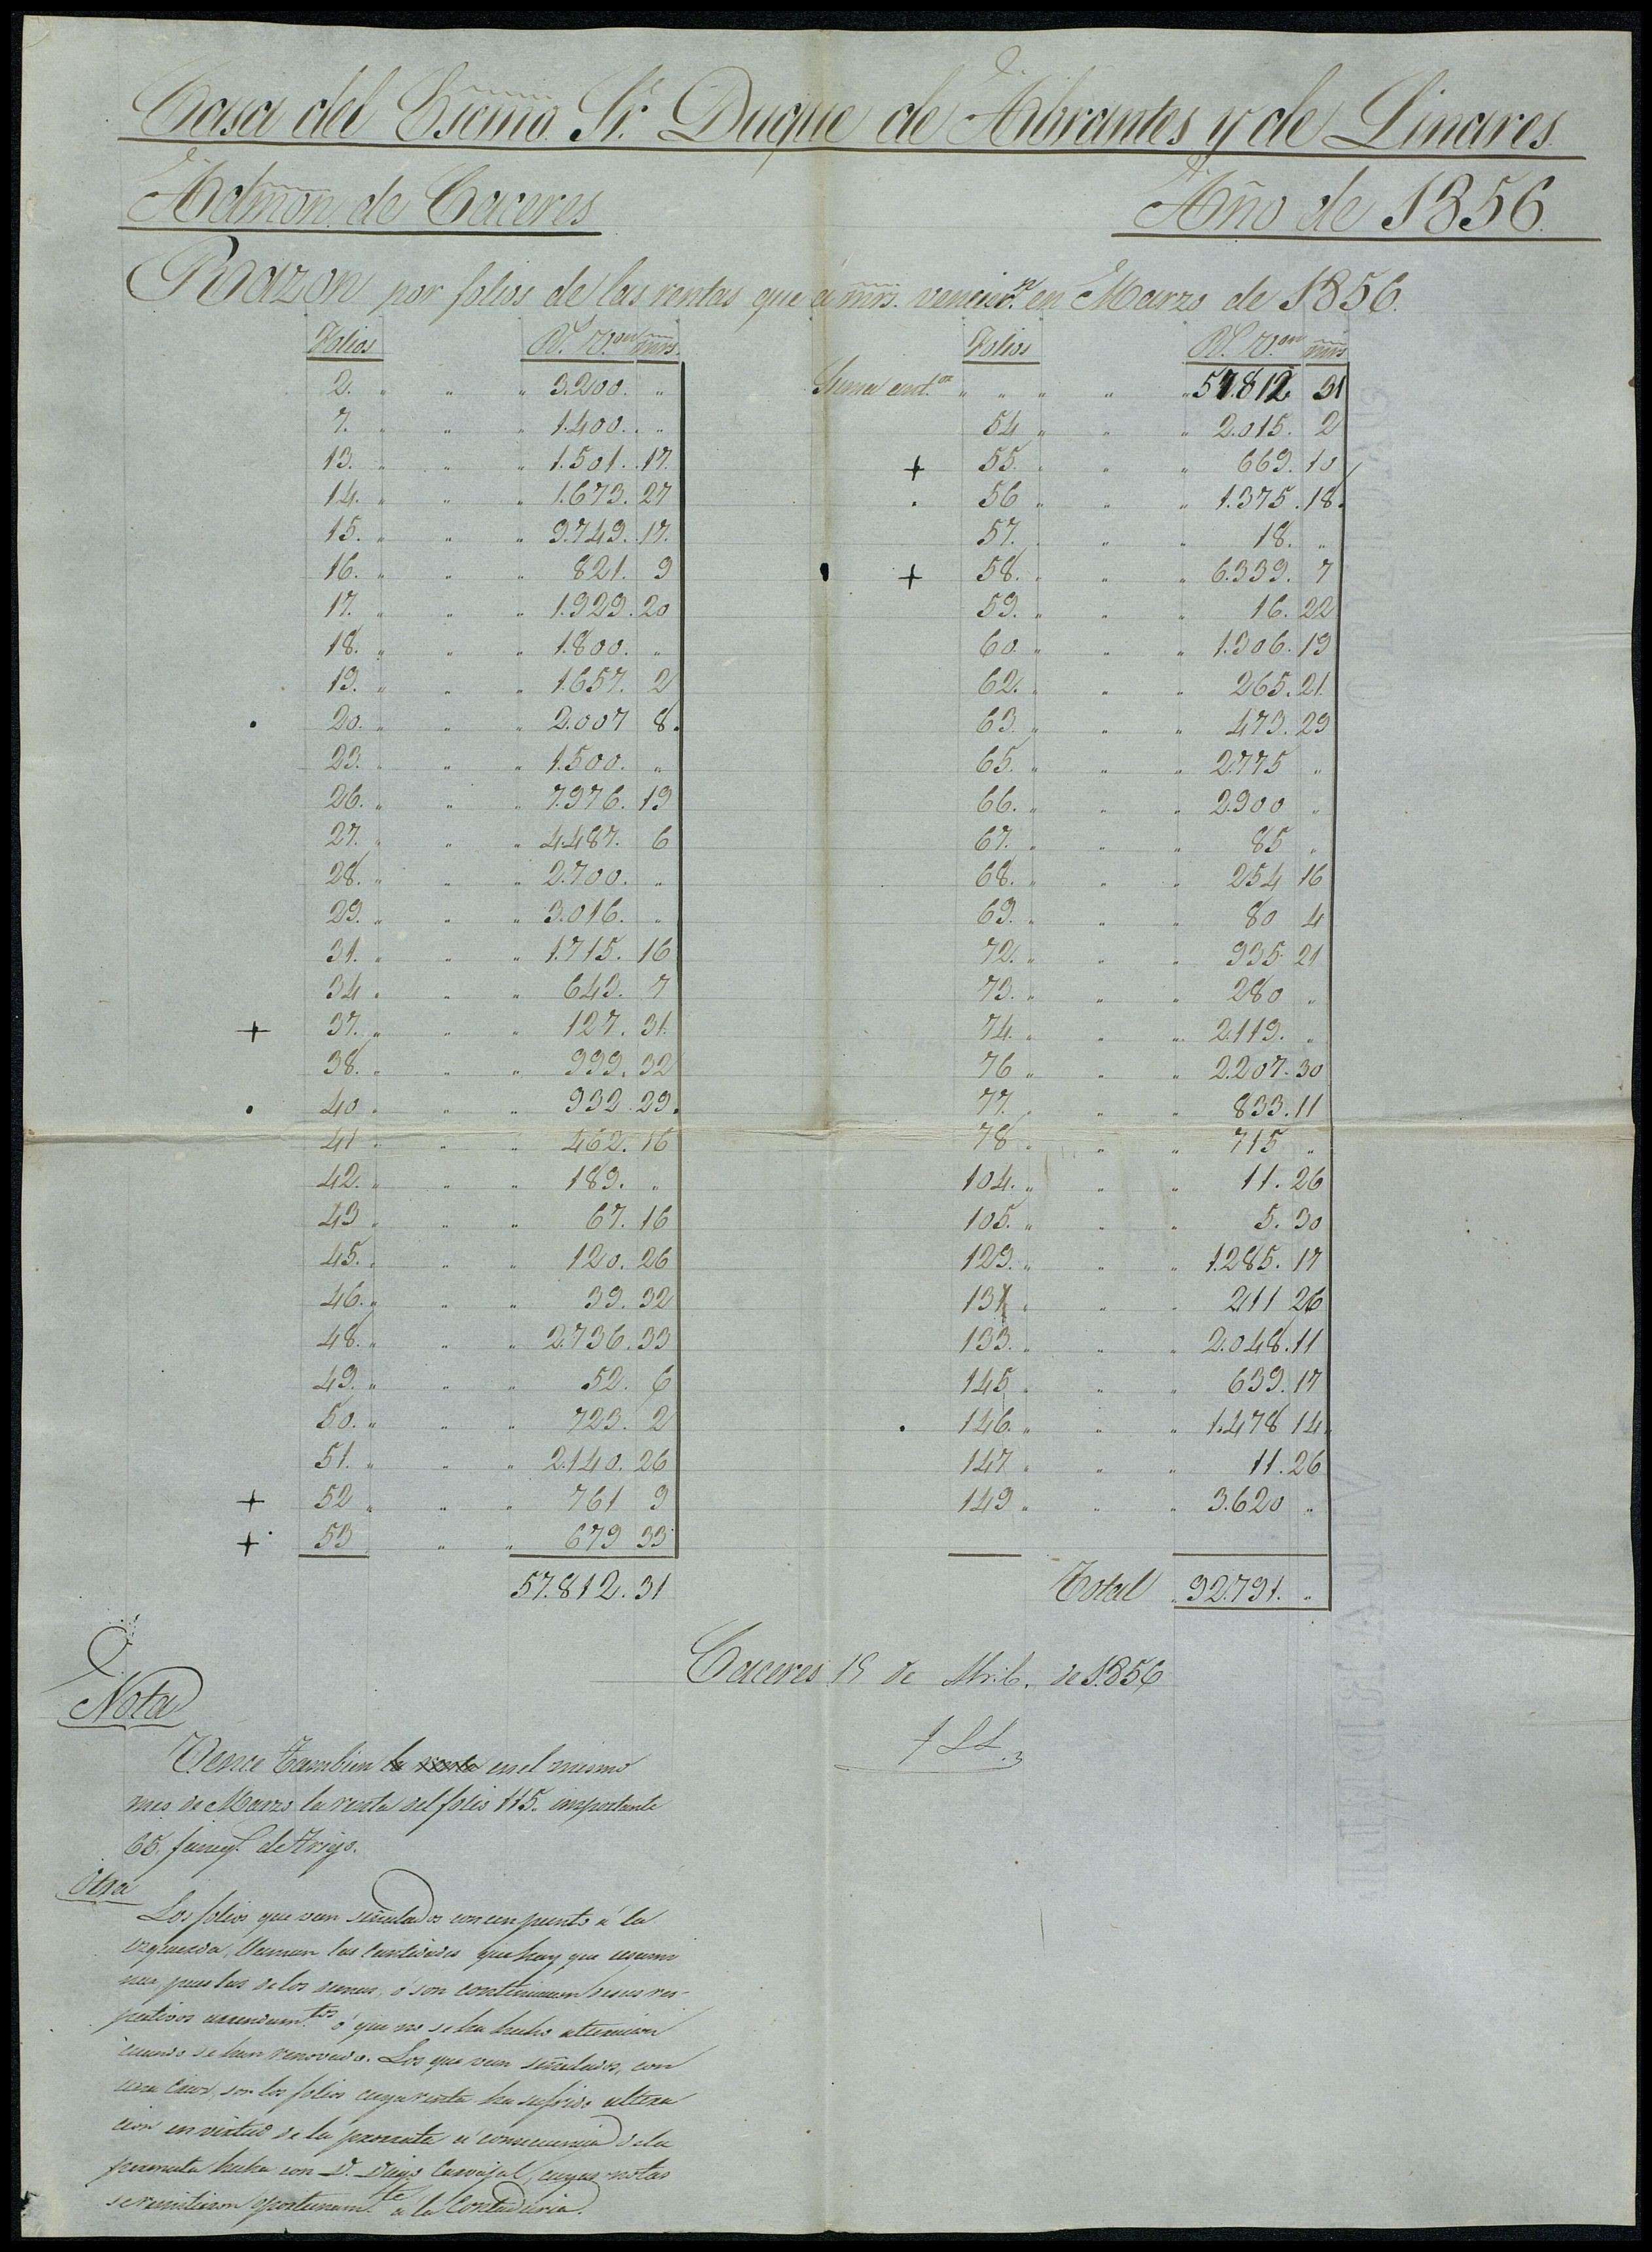 Casa del Escmo. Sr. Duque de Abrantes y de Linares.
Admon. de Caceres
Año de 1856.
Razon por folios de las rentas que a mrs. vencier.n en Marzo de 1856.
Folios Rl. Von mrs.
2. " " " 3.200. "
7. " " " 1.400. "
13. " " " 1.501. 17.
14. " " " 1.673. 27
15. " " " 9.749. 17.
16. " " " 821. 9
17. " " " 1.929. 20
18. " " " 1.800. "
19. " " " 1.657. 2
. 20. " " " 2.007 8.
23. " " " 1.500. "
26. " " " 7.976. 19
27. " " " 4.487. 6
28. " " " 2.700. "
29. " " " 3.016. "
31. " " " 1.715. 16
34 " " " 643. 7
+ 37. " " " 127. 31.
38. " " " 999. 32
. 40 " " " 932. 29.
41 " " " 462. 16
42. " " " 189. "
43 " " " 67. 16
45. " " " 120. 26
46. " " " 39. 32
48. " " " 2.736. 33
49. " " " 52. 6
50. " " " 723. 2
51. " " " 2.140. 26
+ 52 " " " 761 9
+ 53 " " 679 33
57.812. 31
Folios Rl. Von mrs
Suma ant.or " " " " " 57.812 31
54 " " " 2.015. 2
+ 55. " " " 669. 10
. 56 " " " 1.375. 18.
57. " " " 18. "
+ 58. " " " 6.339. 7
59. " " " 16. 22
60. " " " 1.306. 19
62. " " " 265. 21.
63. " " " 473. 29
65. " " " 2.775 "
66. " " " 2.900 "
67. " " " 85 "
68. " " " 254 16
69. " " " 80 4
72. " " " 935. 21
73. " " " 280 "
74. " " " 2.119. "
76 " " " 2.207. 30
77. " " " 833. 11
78 " " " 715 "
104. " " " 11. 26
105. " " " 5. 30
129. " " " 1.285. 17
131 " " " 211 26
133. " " " 2.048. 11
145 " " " 639. 17
. 146. " " " 1.478 14.
147 " " " 11. 26
149 " " " 3.620 "
Total 92.791. "
Caceres 15 de Abril. de 1856
Nota
Vence tambien la renta en el mismo
mes de Marzo la renta del folio 115. importante
65 faneg.s de trigo.
Otra
Los folios que van señalados con un punto á la
izquierda, llaman las cantidades que hay que
pues las de los demas, ó son continuacion de sus res-
pectivos arrendam.tos ó que no se ha hecho alteracion
cuando se han renovado. Los que van señalados, con
una cruz, son los folios cuya renta ha sufrido altera
cion en virtud de la prorrata á consecuencia de la
permuta hecha con D. Diego Carvajal, cuyas notas
se remitieron oportunam.te a la Contaduria.